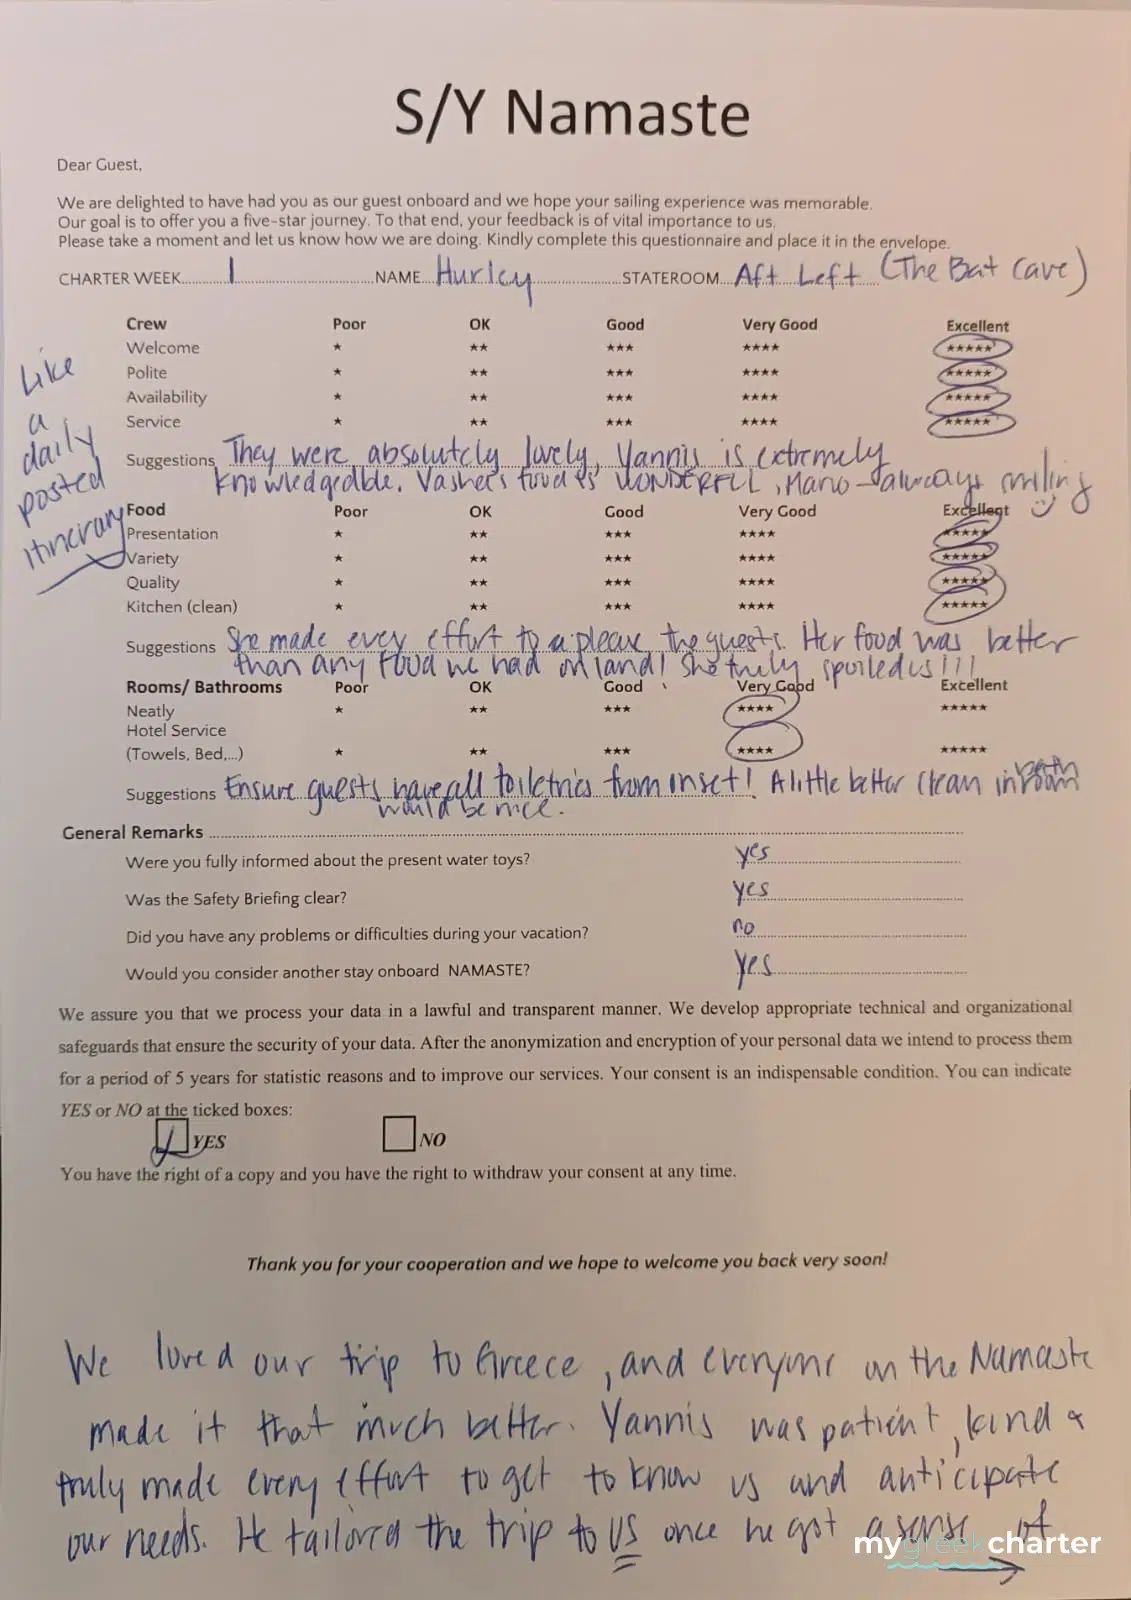 S/Y Namaste
Dear Guest,
We are delighted to have had you as our guest onboard and we hope your sailing experience was memorable.
Our goal is to offer you a five-star journey. To that end, your feedback is of vital importance to us.
Please take a moment and let us know how we are doing. Kindly complete this questionnaire and place it in the envelope.
CHARTER WEEK 1 NAME Hurley STATEROOM Aft Left (The Bat Cave)
Crew Poor OK Good Very Good Excellent
Welcome ★ ★★ ★★★ ★★★★ ★★★★★
Polite ★ ★★ ★★★ ★★★★ ★★★★★
Availability ★ ★★ ★★★ ★★★★ ★★★★★
Service ★ ★★ ★★★ ★★★★ ★★★★★
Like
a
daily
posted
itinerary
Suggestions They were absolutely lovely, Yannis is extremely
knowledgedble. food is WONDERFUL, Mano - always smiling
Food Poor OK Good Very Good Excellent
Presentation ★ ★★ ★★★ ★★★★ ★★★★★
Variety ★ ★★ ★★★ ★★★★ ★★★★★
Quality ★ ★★ ★★★ ★★★★ ★★★★★
Kitchen (clean) ★ ★★ ★★★ ★★★★ ★★★★★
Suggestions She made every effort to please the guests. Her food was better
than any food we had on land! She truly spoiled us!!!
Rooms/ Bathrooms Poor OK Good Very Good Excellent
Neatly ★ ★★ ★★★ ★★★★ ★★★★★
Hotel Service
(Towels, Bed,...) ★ ★★ ★★★ ★★★★ ★★★★★
Suggestions Ensure guests have all toiletries from onset! A little better clean in bathroom
would be nice.
General Remarks
Were you fully informed about the present water toys? yes
Was the Safety Briefing clear? yes
Did you have any problems or difficulties during your vacation? no
Would you consider another stay onboard NAMASTE? yes
We assure you that we process your data in a lawful and transparent manner. We develop appropriate technical and organizational
safeguards that ensure the security of your data. After the anonymization and encryption of your personal data we intend to process them
for a period of 5 years for statistic reasons and to improve our services. Your consent is an indispensable condition. You can indicate
YES or NO at the ticked boxes:
YES NO
You have the right of a copy and you have the right to withdraw your consent at any time.
Thank you for your cooperation and we hope to welcome you back very soon!
We loved our trip to Greece, and everyone on the Namaste
made it that much better. Yannis was patient, kind &
truly made every effort to get to know us and anticipate
our needs. He tailored the trip to US once he got a sense of
mygreekcharter